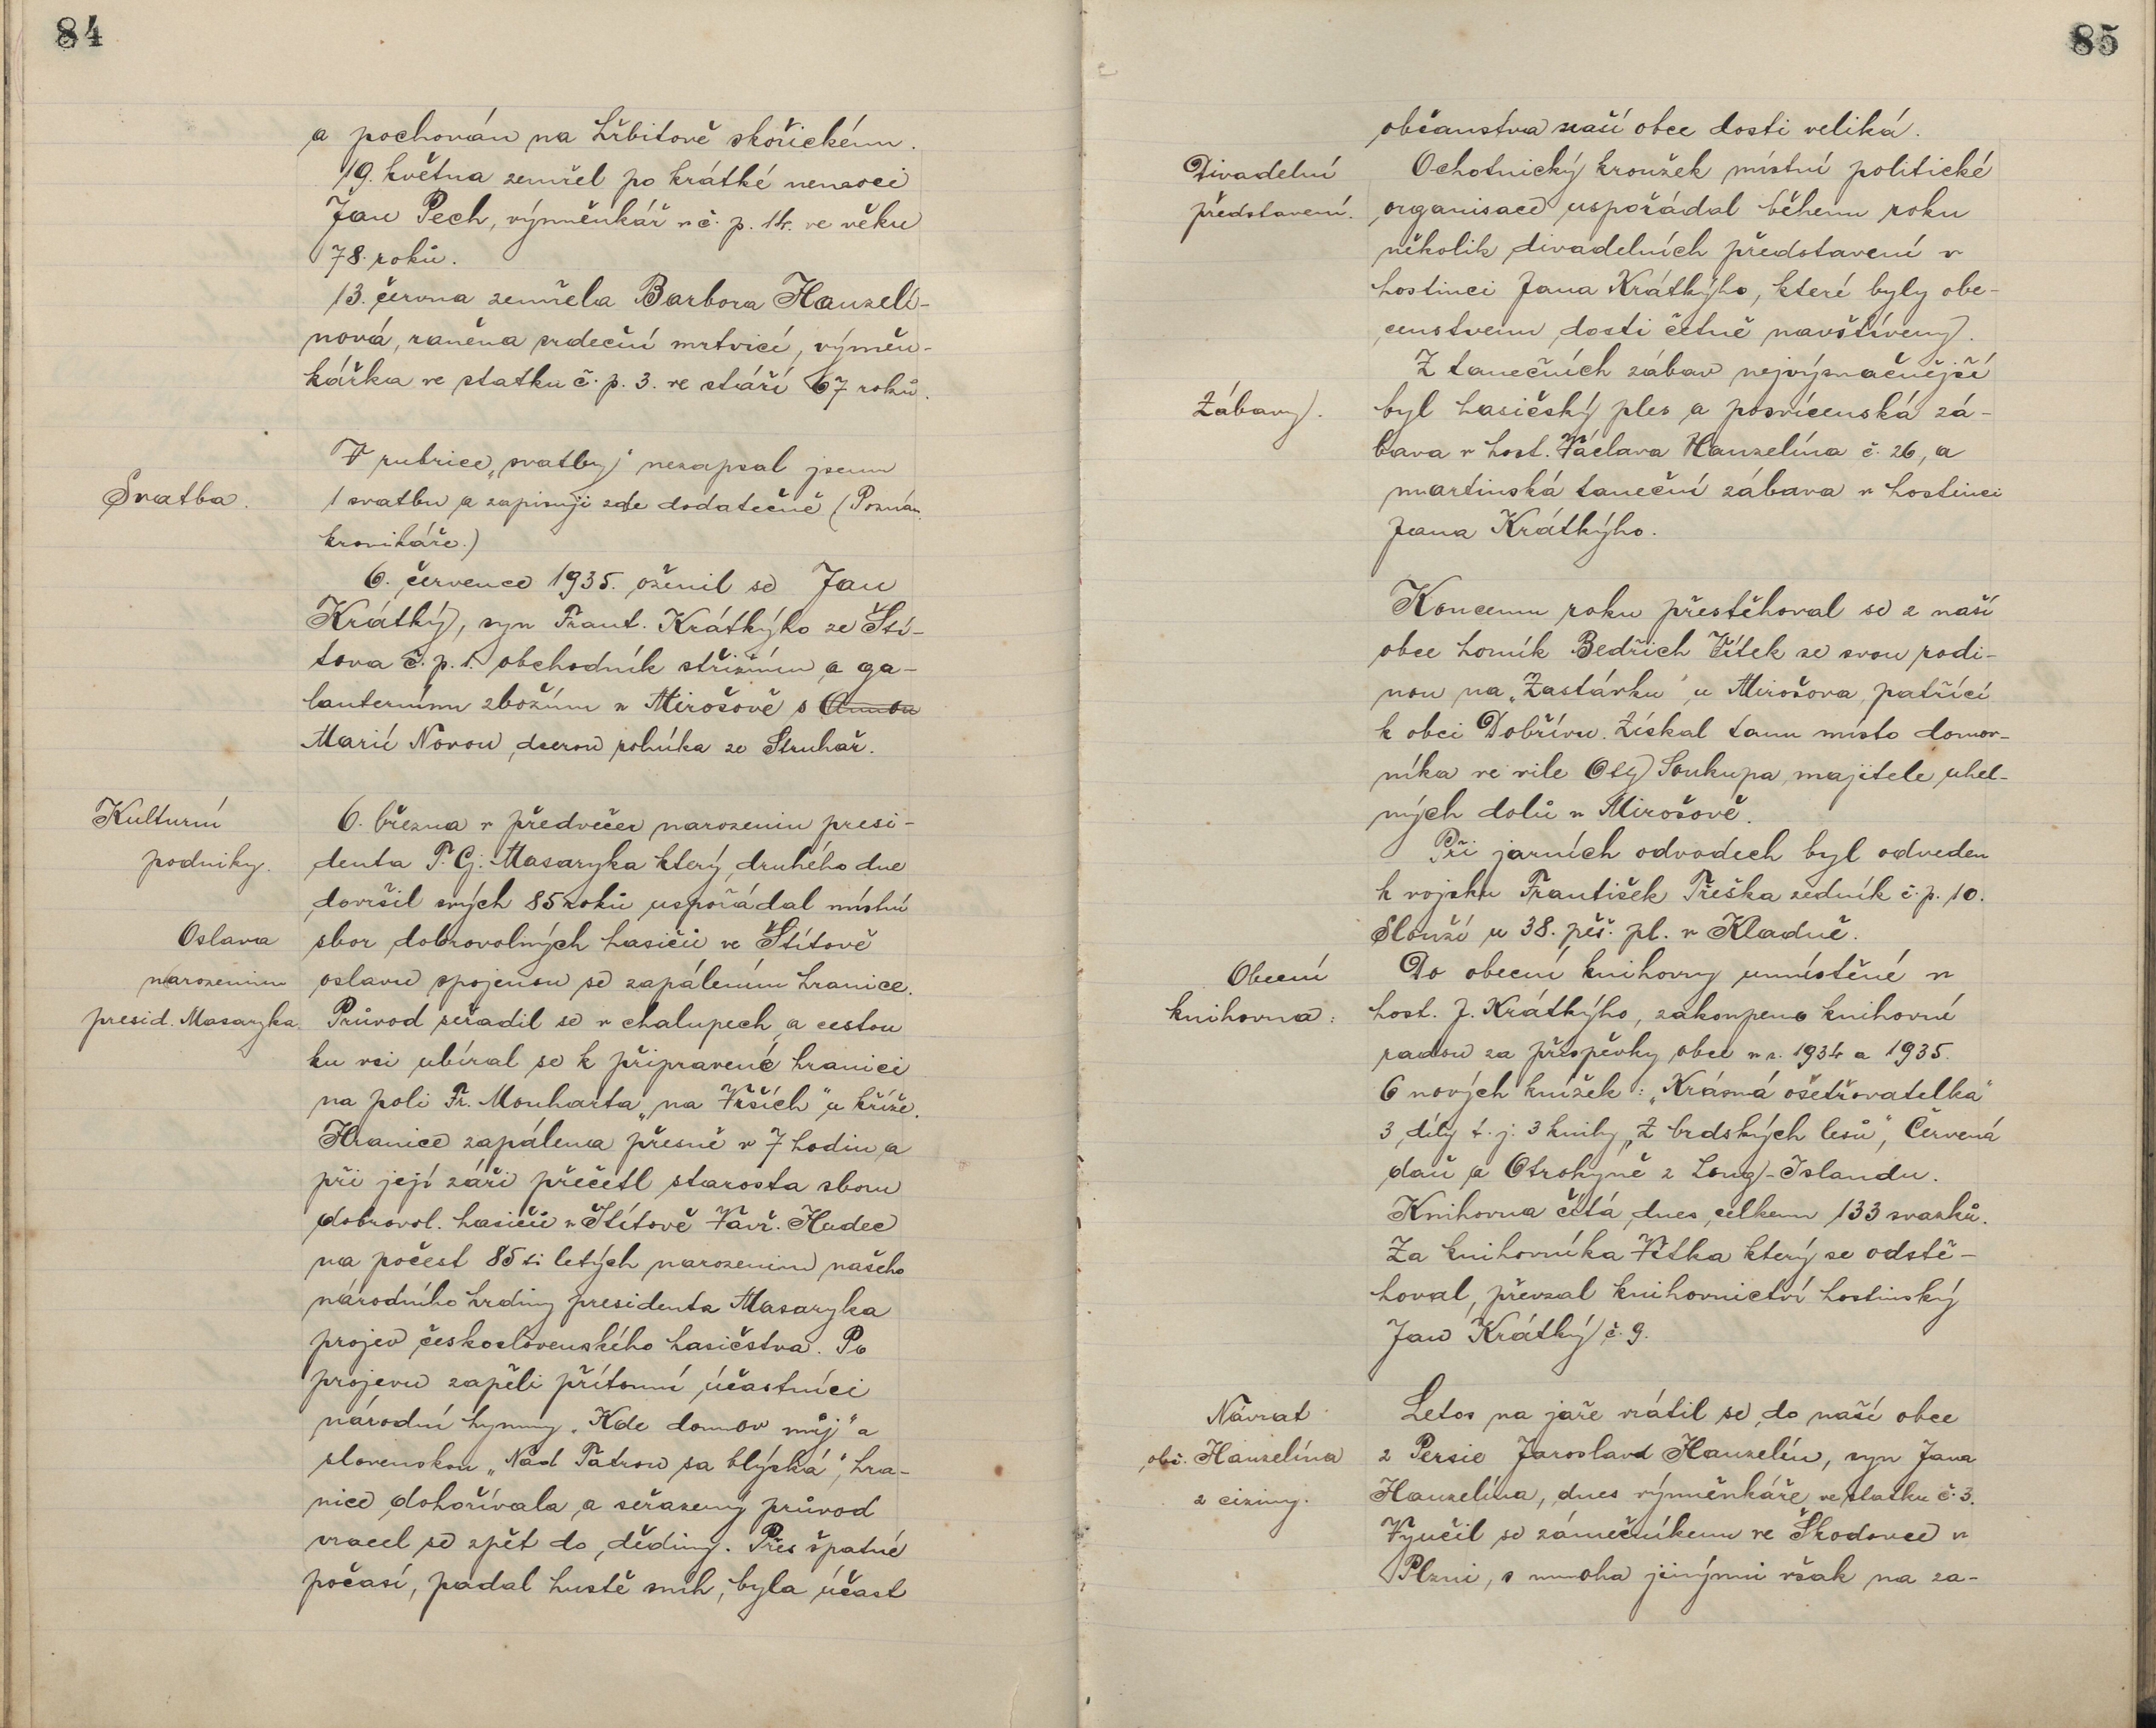 84
a pochován na hřbitově skořickém.
19. května zemřel po krátké nemoci
Jan Pech, výměnkář v č. p. 14. ve věku
78. roků.
13. června zemřela Barbora Hauzelí-
nová, raněna srdeční mrtvicí, výměn-
kářka ve statku č. p. 3. ve stáří 67 roků.
Svatba.
V rubrice „svatby“ nezapsal jsem
1 svatbu a zapisuji zde dodatečně (Poznám.
kronikáře.)
6. července 1935. oženil se Jan
Krátký, syn Frant. Krátkýho ze Ští-
tova č. p. 1. obchodník střižním a ga-
lanterním zbožím v Mirošově s Annou
Marií Novou, dcerou rolníka ze Struhař.
Kulturní
podniky.
6. března v předvečer narozenin presi-
denta T. G. Masaryka který druhého dne
dovršil svých 85 roků uspořádal místní
Oslava
narozenin
presid. Masaryka.
sbor dobrovolných hasičů ve Štítově
oslavu spojenou se zapálením hranice.
Průvod seřadil se v chalupech a cestou
ku vsi ubíral se k připravené hranici
na poli Fr. Mouharta „na Vrších“ u kříže.
Hranice zapálena přesně v 7 hodin a
při její záři přečetl starosta sboru
dobrovol. hasičů v Štítově Vavř. Hudec
na počest 85 ti letých narozenin našeho
národního hrdiny presidenta Masaryka
projev československého hasičstva. Po
projevu zapěli přítomní účastníci
národní hymny „Kde domov můj“ a
slovenskou „Nad Tatrou sa blýská“, hra-
nice dohořívala a seřazený průvod
vracel se zpět do dědiny. Přes špatné
počasí, padal hustě sníh, byla účast
85
občanstva naší obce dosti veliká.
Divadelní
představení.
Ochotnický kroužek místní politické
organisace uspořádal během roku
několik divadelních představení v
hostinci Jana Krátkýho, které byly obe-
censtvem dosti četně navštíveny.
Zábavy.
Z tanečních zábav nejvýznačnější
byl hasičský ples a posvícenská zá-
bava v host. Václava Hauzelína č. 26, a
martinská taneční zábava v hostinci
Jana Krátkýho.
Koncem roku přestěhoval se z naší
obce horník Bedřich Vítek se svou rodi-
nou na „Zastávku“ u Mirošova patřící
k obci Dobřívu. Získal tam místo domov-
níka ve vile Oty Soukupa majitele uhel-
ných dolů v Mirošově.
Při jarních odvodech byl odveden
k vojsku František Třeška zedník č. p. 10.
Slouží u 38. pěš. pl. v Kladně.
Obecní
knihovna:
Do obecní knihovny umístěné v
host. J. Krátkýho, zakoupeno knihovní
radou za příspěvky obce v r. 1934 a 1935.
6 nových knížek: „Krásná ošetřovatelka“
3 díly t. j. 3 knihy „Z brdských lesů“, Červená
daň a Otrokyně z Long-Islandu.
Knihovna čítá dnes celkem 133 svazků.
Za knihovníka Vítka který se odstě-
hoval, převzal knihovnictví hostinský
Jan Krátký č. 9.
Návrat
obč. Hauzelína
z ciziny.
Letos na jaře vrátil se do naší obce
z Persie Jaroslav Hauzelín, syn Jana
Hauzelína, dnes výměnkáře ve statku č. 3.
Vyučil se zámečníkem ve Škodovce v
Plzni, s mnoha jinými však na za-